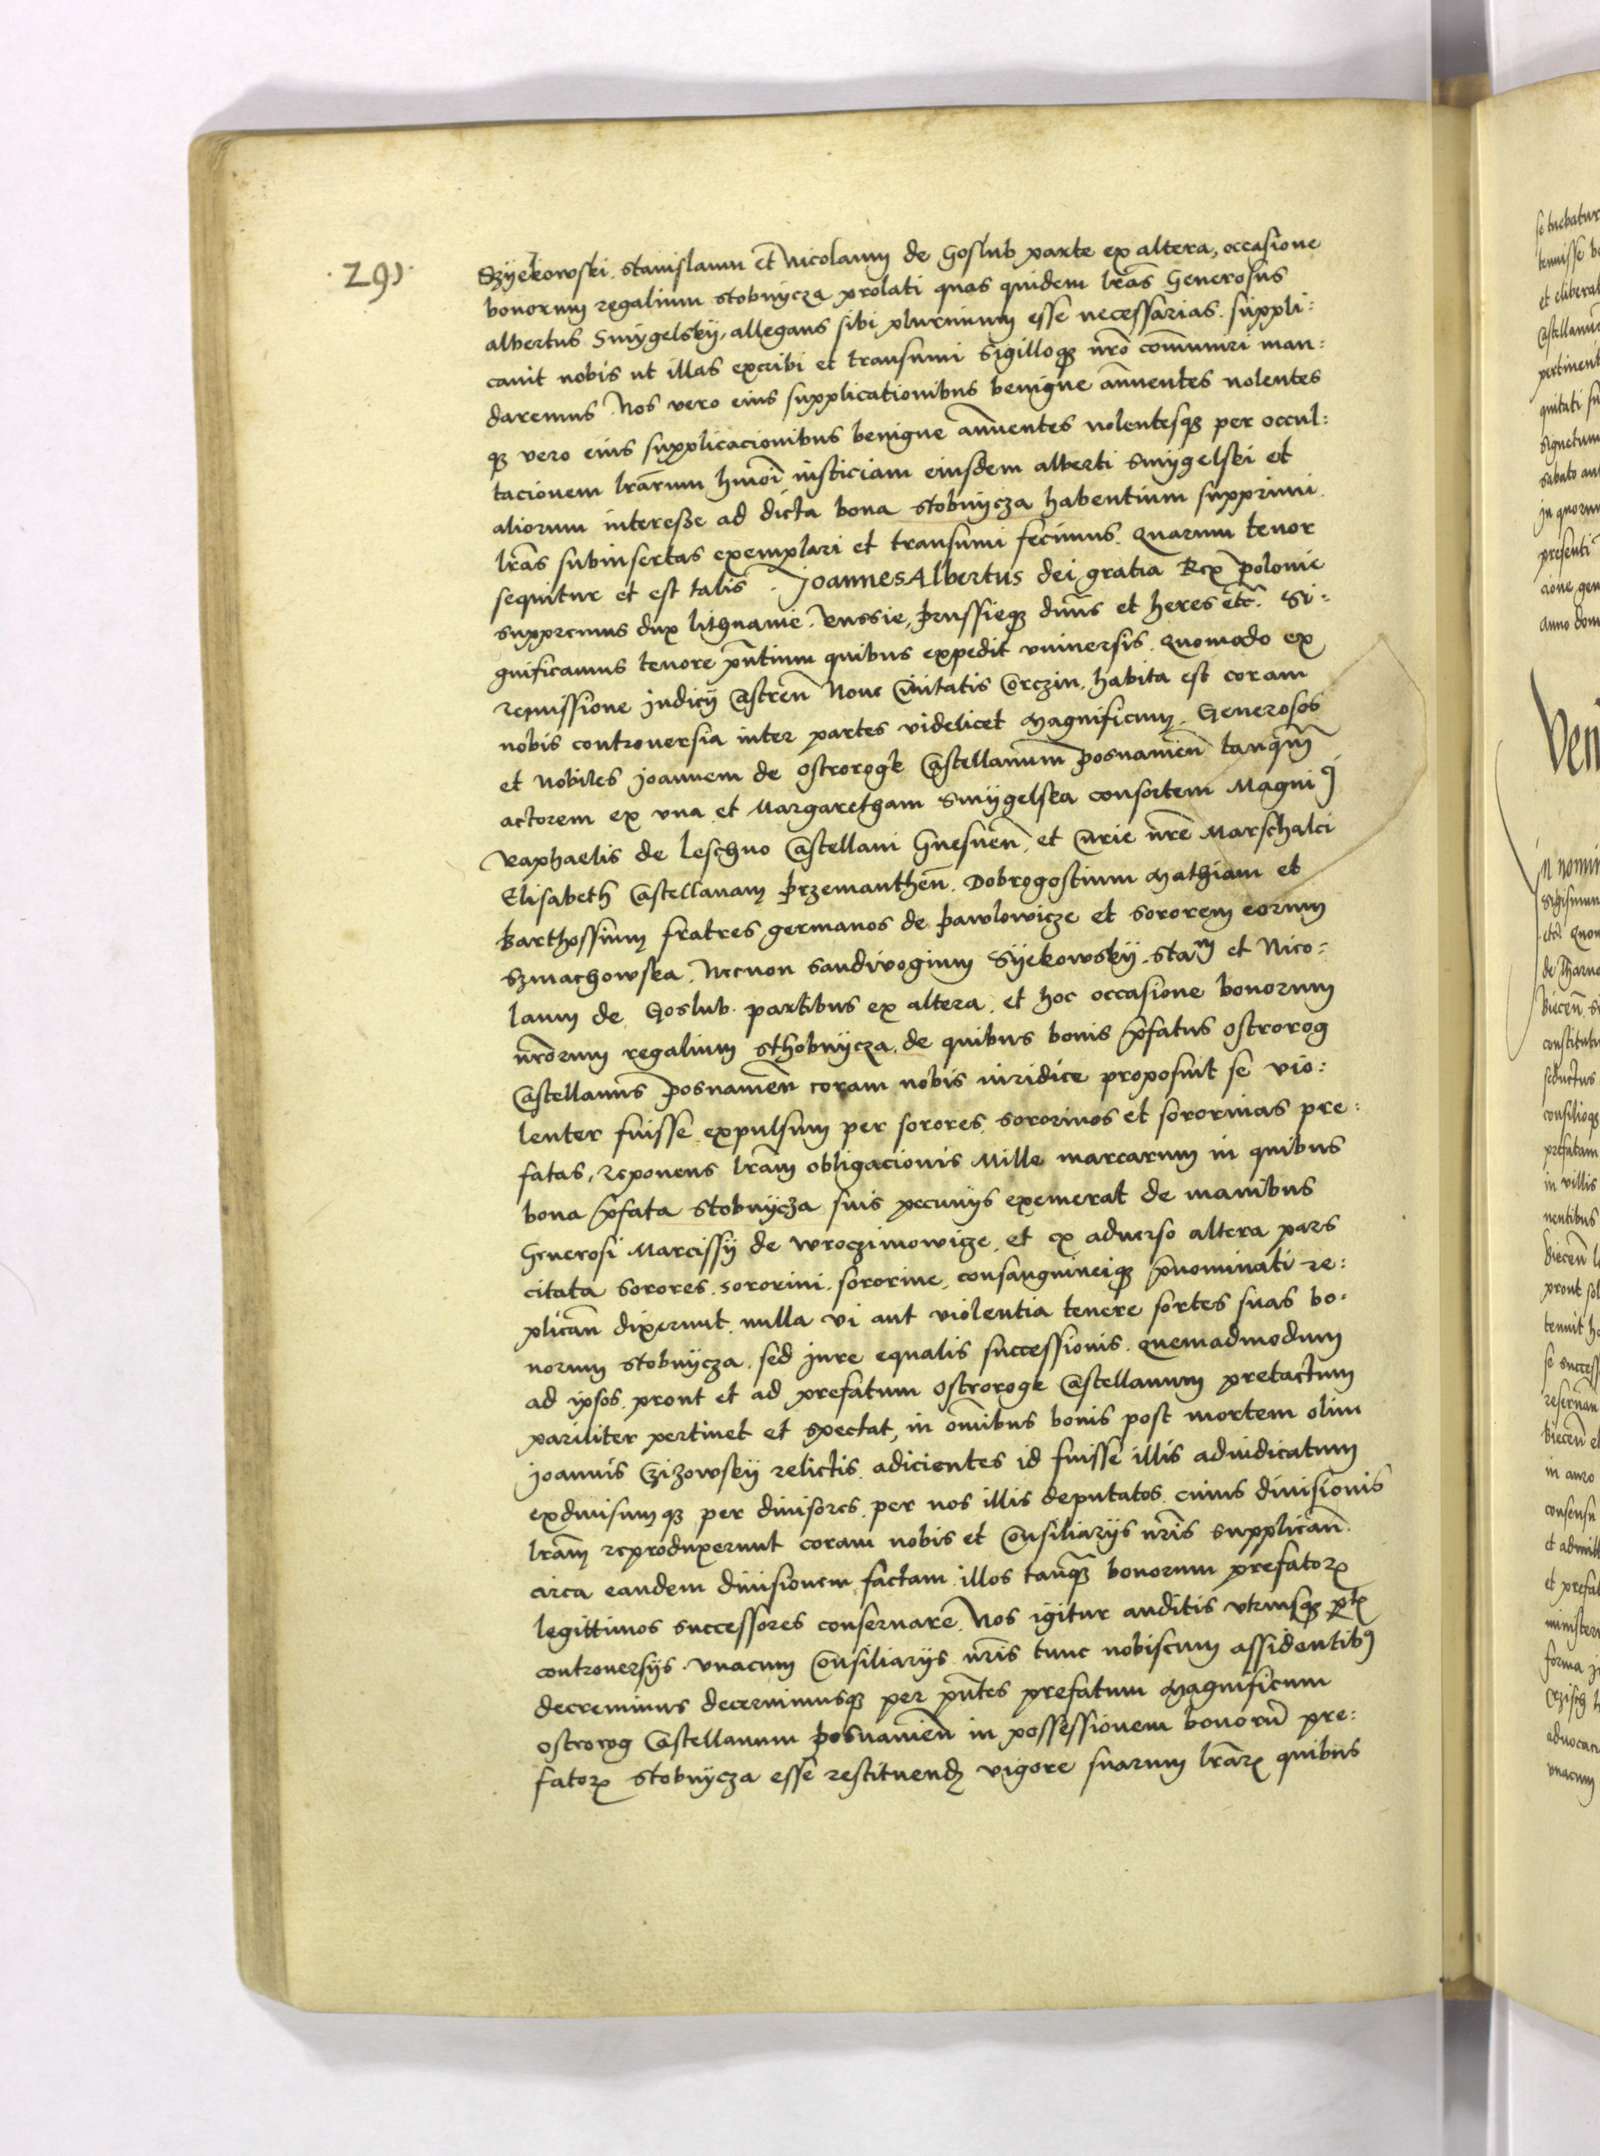 ·291·
Szyekowski. stanislaum et Nicolaum de Goslub parte ex altera, occasione
bonorum regalium stobnycza prolati quas quidem lras Generosus
albertus Smygelsky, allegans sibi plurimum esse necessarias. suppli:
cauit nobis ut illas excribi et transumi Sigilloq nro communiri man:
daremus. Nos vero eius supplicationibus benigne annuentes nolentes
q vero eius supplicacionibus benigne annuentes nolentesq per occul:
tacionem lrarum hmoi iusticiam eiusdem alberti smygelski et
aliorum interesse ad dicta bona stobnycza habentium supprimi.
lras subinsertas exemplari et transumi fecimus. Quarum tenor
sequitur et est talis. Joannes Albertus dei gratia Rex polonie
suppremus dux lithuanie. Russie, prussieq dnus et heres etc. Si:
gnificamus tenore pntium quibus expedit vniuersis. Quomodo ex
remissione Judicij Castren Noue Ciuitatis Corczin. habita est coram
nobis controuersia inter partes videlicet Magnificum. Generosos
et Nobiles Joannem de Ostrorogk Castellanum posnanien tanqm
actorem ex vna et Margaretham Smygelska consortem Magni9
Raphaelis de leschno Castellani Gnesnen. et Curie nre Marschalci
Elisabeth Castellanam przemanthen. Dobrogostium Mathiam et
Barthossium fratres germanos de pawlowicze et sororem eorum
Szmachowska. Necnon sandivogium Syekowsky. stam et Nico:
laum de Goslub. partibus ex altera. et hoc occasione bonorum
nrorum regalium sthobnycza. de quibus bonis pfatus Ostrorog
Castellanus posnanien coram nobis iuridice proposuit se vio:
lenter fuisse expulsum per sorores, sororinos et sororinas pre:
fatas, reponens lram obligacionis Mille marcarum in quibus
bona pfata stobnycza suis pecunijs exemerat de manibus
Generosi Marcissij de Wroczimowicze. et ex aduerso altera pars
citata sorores. sororini. sororine, consanguineiq pnominati re:
plican dixerunt. nulla vi aut violentia tenere sortes suas bo:
norum stobnycza. sed jure equalis successionis. quemadmodum
ad ipsos. prout et ad prefatum Ostrorogk Castellanum pretactum
pariliter pertinet et spectat, in omibus bonis post mortem olim
Joannis Czizowsky relictis. adicientes id fuisse illis adiudicatum
exdiuisumq per diuisores. per nos illis deputatos. cuius diuisionis
lram reproduxerunt coram nobis et Consiliarijs nris supplican.
circa eandem diuisionem factam. illos tanq bonorum prefator
legittimos successores conseruare. Nos igitur auditis vtriusq ptis
controuersijs. vnacum Consiliarijs nris tunc nobiscum assidentib9
decreuimus decernimusq per pntes prefatum Magnificum
Ostrorog Castellanum posnanien in possessionem bonoru pre:
fator stobnycza esse restituend vigore suarum lrar quibus